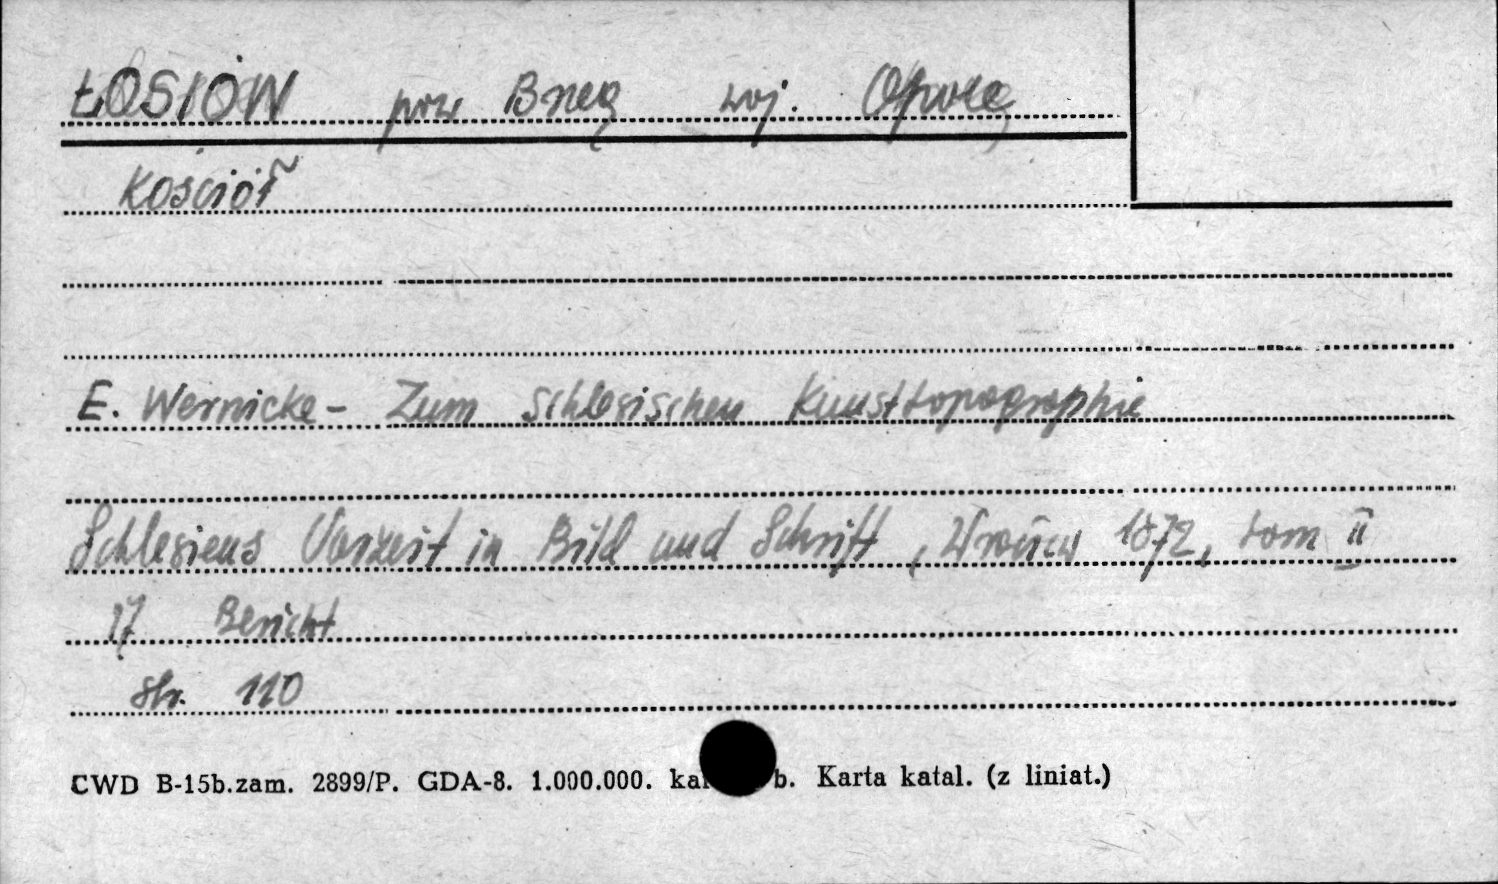 ŁOSIÓW pow Brzeg woj. Opole
Kościół
E. Wernicke - Zum schlesischen Kunsttopographie
Schlesiens Vorzeit in Bild und Schrift, Wrocław 1872, tom II
17 Bericht
str. 110
CWD B-15b.zam. 2899/P. GDA-8. 1.000.000. b. Karta katal. (z liniat.)